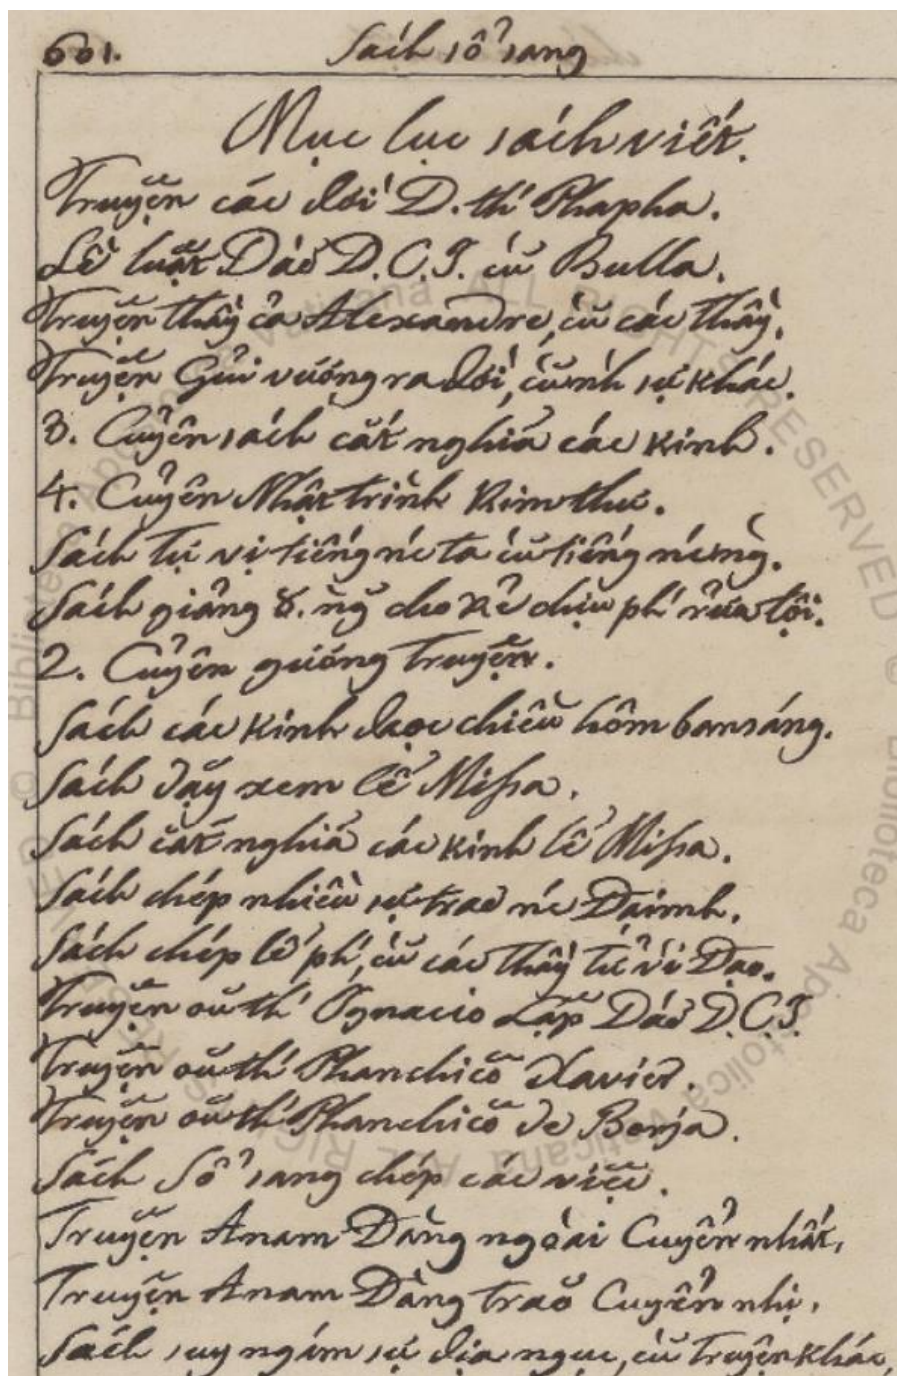 601. Sách sổ sang
Mục lục sách viết.
Truyện các đời D. thí Phapha.
Lề luật Dáò D.C.J. cù̃ Bulla.
Truyện thầy cả Alexandre, cù̃ các thầy.
Truyện Gủi vương ra đời, cù̃ nh sự khác.
3. Cuỷên sách cắt nghĩa các kinh.
4. Cuỷên Nhật trình Kim thư.
Sách Tự vị tiếng nc ta cù̃ tiếng nc
Sách giảng 8. ng̃ cho kẻ chịu ph' rửa tội.
2. Cuỷên gương truyện.
Sách các kinh đaọc chiều hôm ban sáng.
Sách dạy xem lễ Missa.
Sách cắt nghĩa các kinh lễ Missa.
Sách chép nhiều sự trao nc Đaimh.
Sách chép lễ ph', cù̃ các thầy tử vì Đạo.
Truyện oũ thí Ygnacio Lập Dáò D.C.J
Truyện oũ thí Phanchicõ Xavier.
Truyện oũ thí Phanchicõ de Borja.
Sách Sổ sang chép các việc.
Truyện Anam Đàng ngoài Cuyển nhất,
Truyện Anam Đàng traõ Cuyển nhị,
Sách suy ngắm sự địa ngục, cù̃ truyện khác,
ALL RIGHTS RESERVED © Biblioteca Apostolica Vaticana